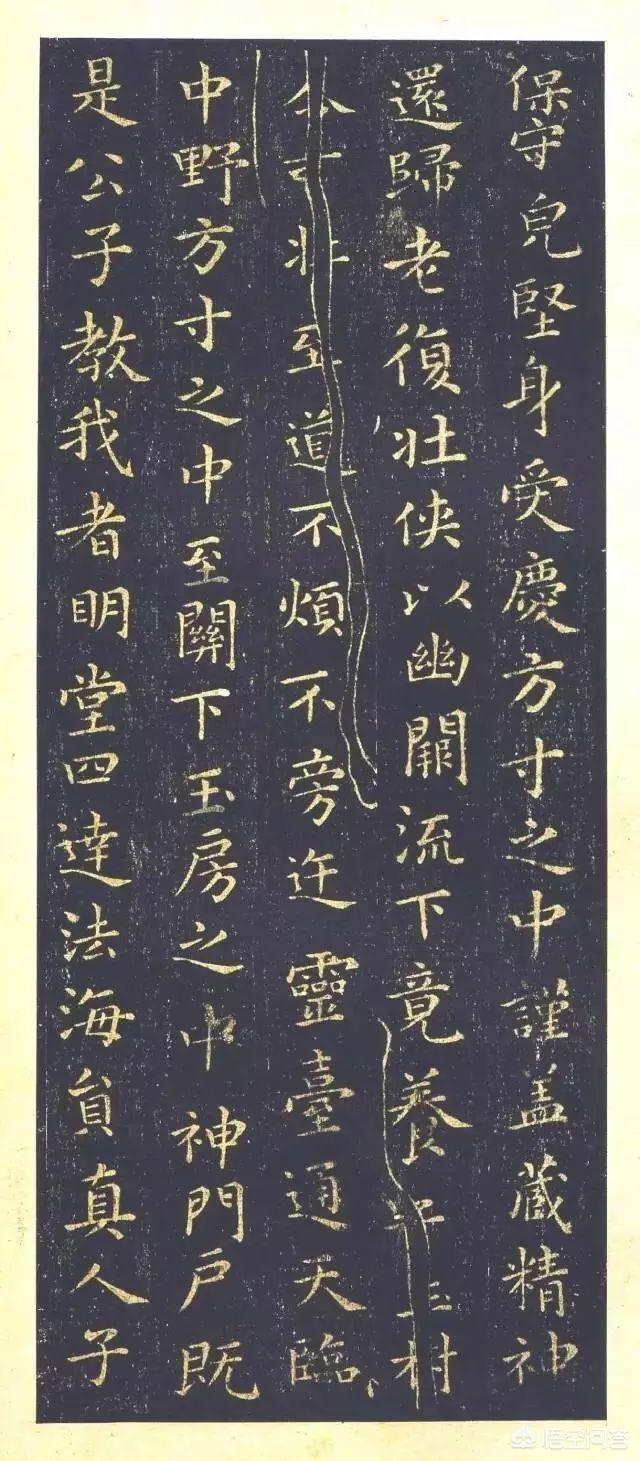 保守皃堅身受慶方寸之中謹盖藏精神
還歸老復壯俠以幽闕流下竟養玉村
不方壯至道不煩不旁迕靈臺通天臨
中野方寸之中至關下玉房之中神門戶既
是公子教我者明堂四達法海貟真人子
悟空问答